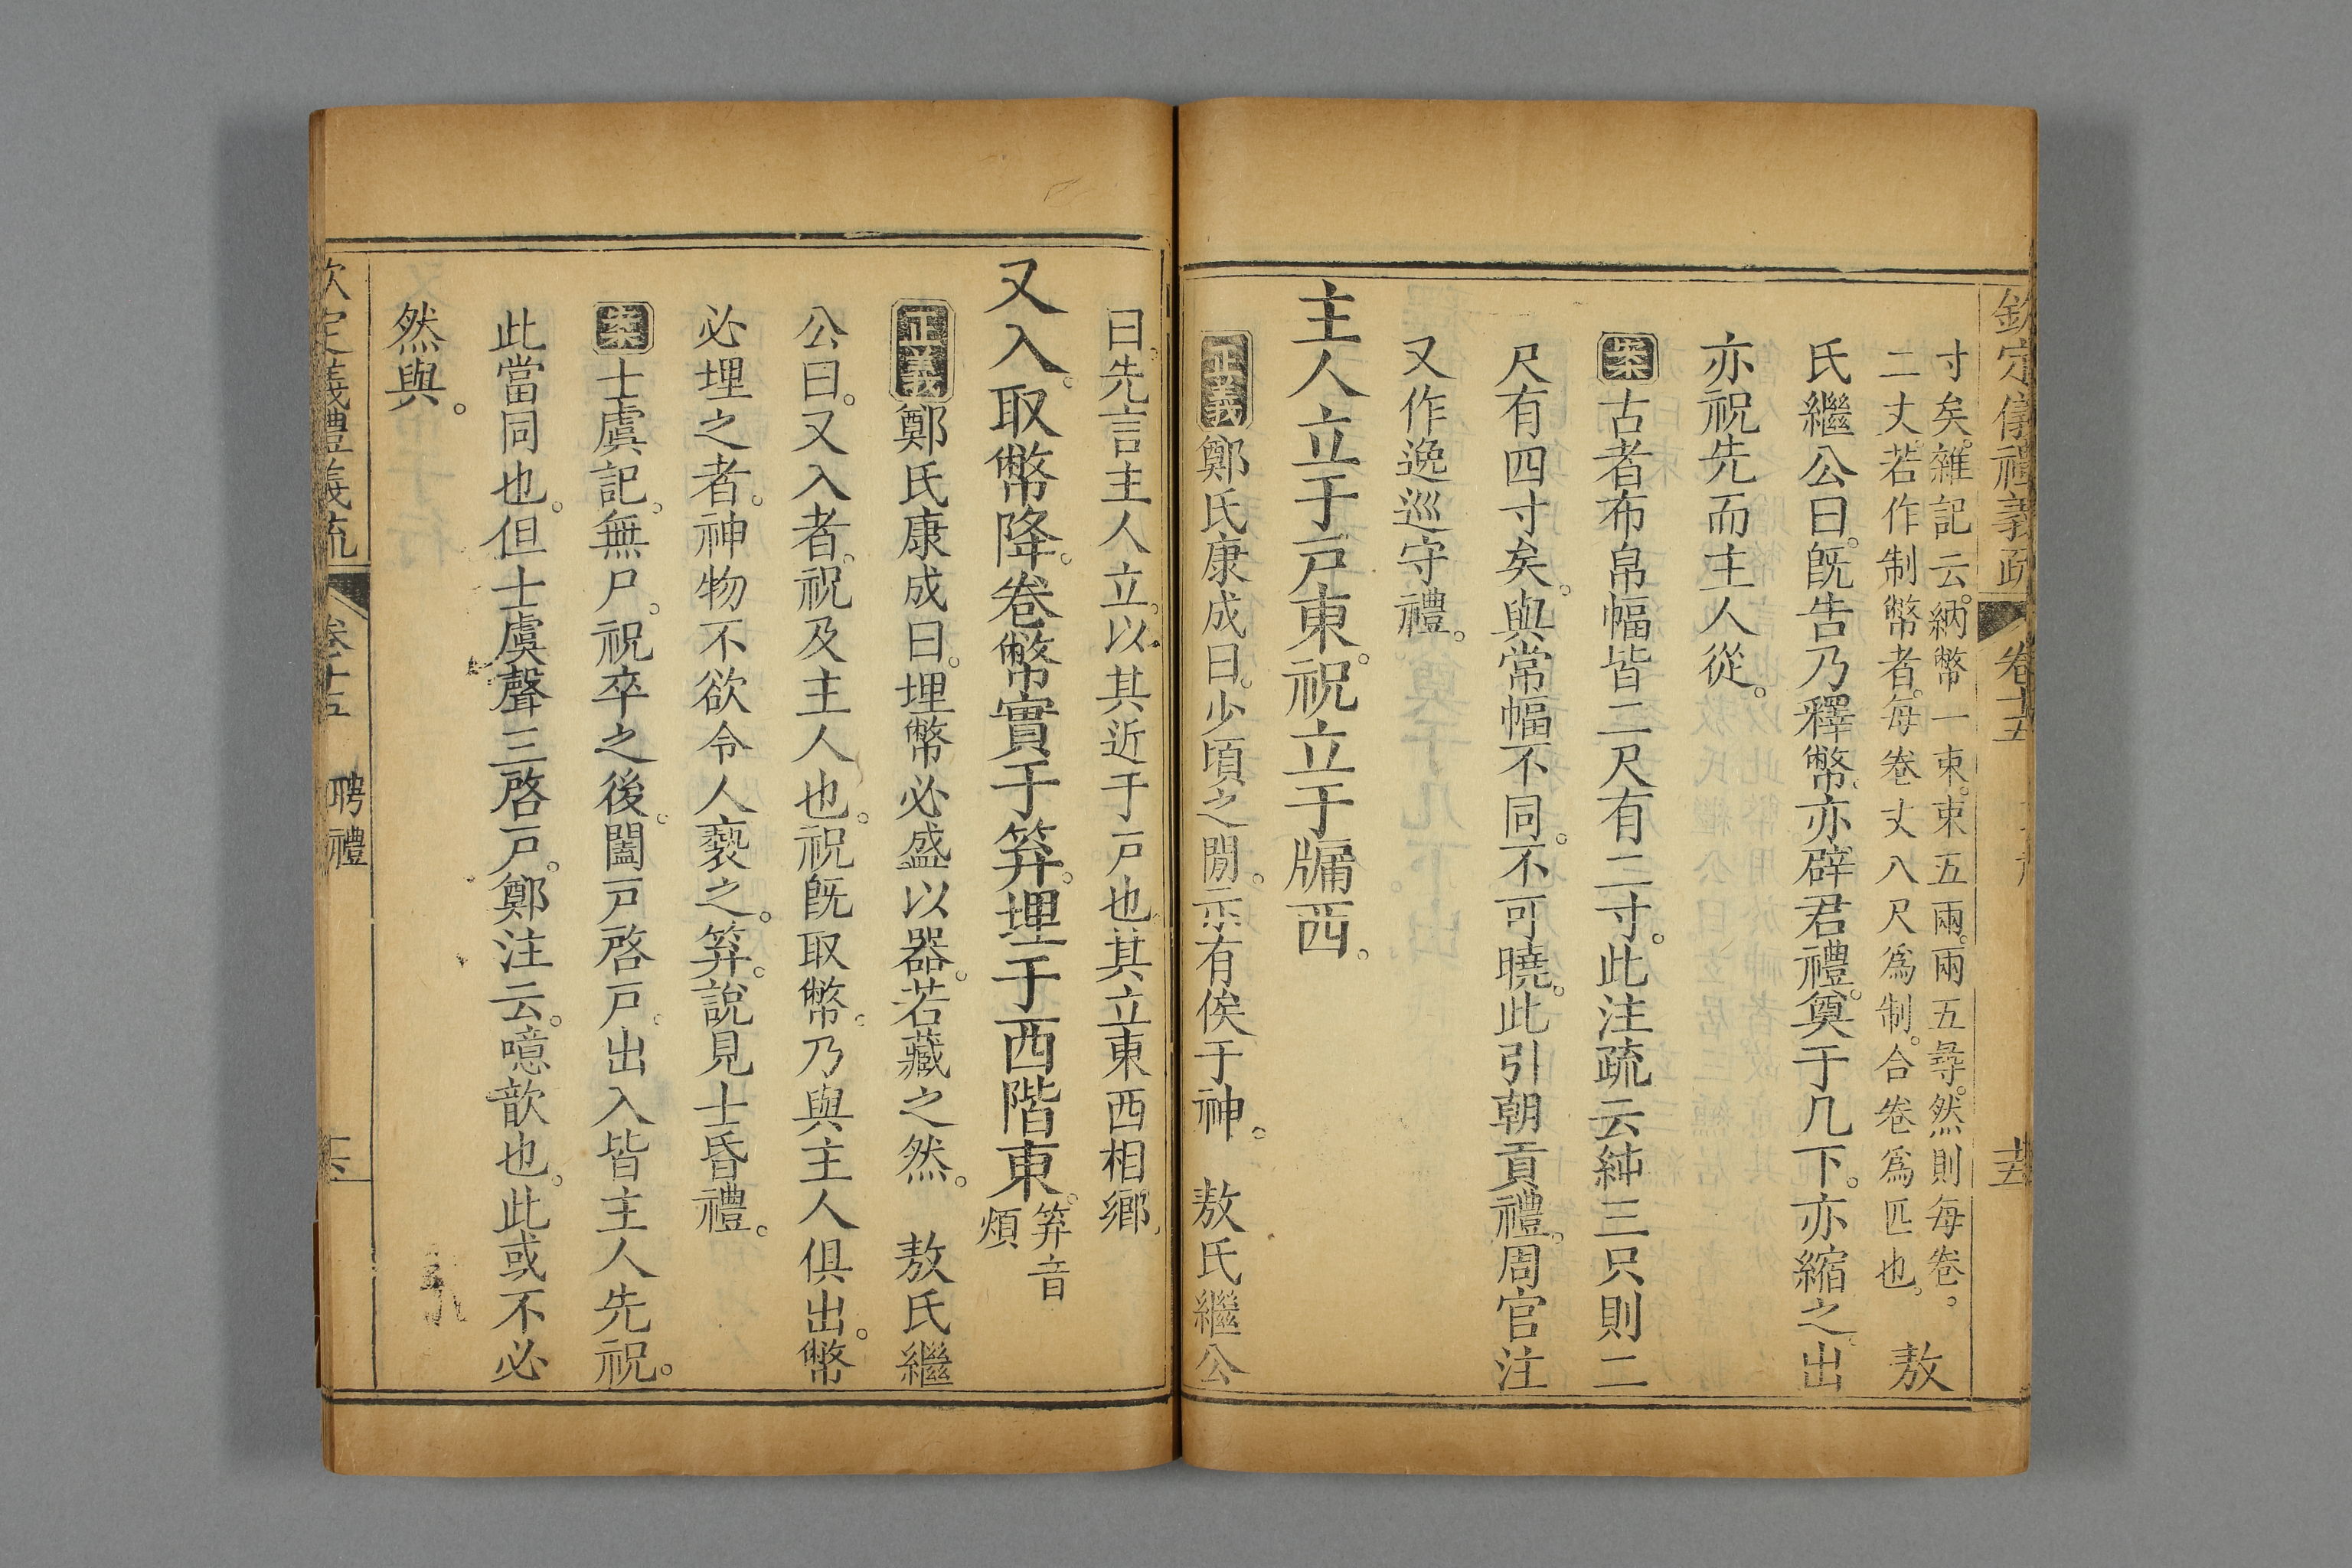 欽定儀禮義疏 卷十五
寸矣。雜記云。納幣一束。束五兩。兩五尋。然則每卷。
二丈。若作制幣者。每卷丈八尺爲制。合卷爲匹也。 敖
氏繼公曰。旣告乃釋幣。亦辟君禮。奠于几下。亦縮之。出
亦祝先而主人從。
案古者布帛幅皆二尺有二寸。此注疏云純三只則二
尺有四寸矣。與常幅不同。不可曉。此引朝貢禮。周官注
又作逸巡守禮。
主人立于戸東。祝立于牖西。
正義鄭氏康成曰。少頃之閒。示有俟于神。 敖氏繼公
曰。先言主人立。以其近于戸也。其立東西相鄉。
又入。取幣降。卷幣實于笲。埋于西階東。笲音煩
正義鄭氏康成曰。埋幣必盛以器。若藏之然。 敖氏繼
公曰。又入者。祝及主人也。祝旣取幣。乃與主人俱出。幣
必埋之者。神物不欲令人褻之。笲。說見士昏禮。
案士虞記。無尸。祝卒之後。闔戸啓戸。出入皆主人先祝。
此當同也。但士虞聲三啓戸。鄭注云。噫歆也。此或不必
然與。
欽定義禮義疏 卷十五 聘禮